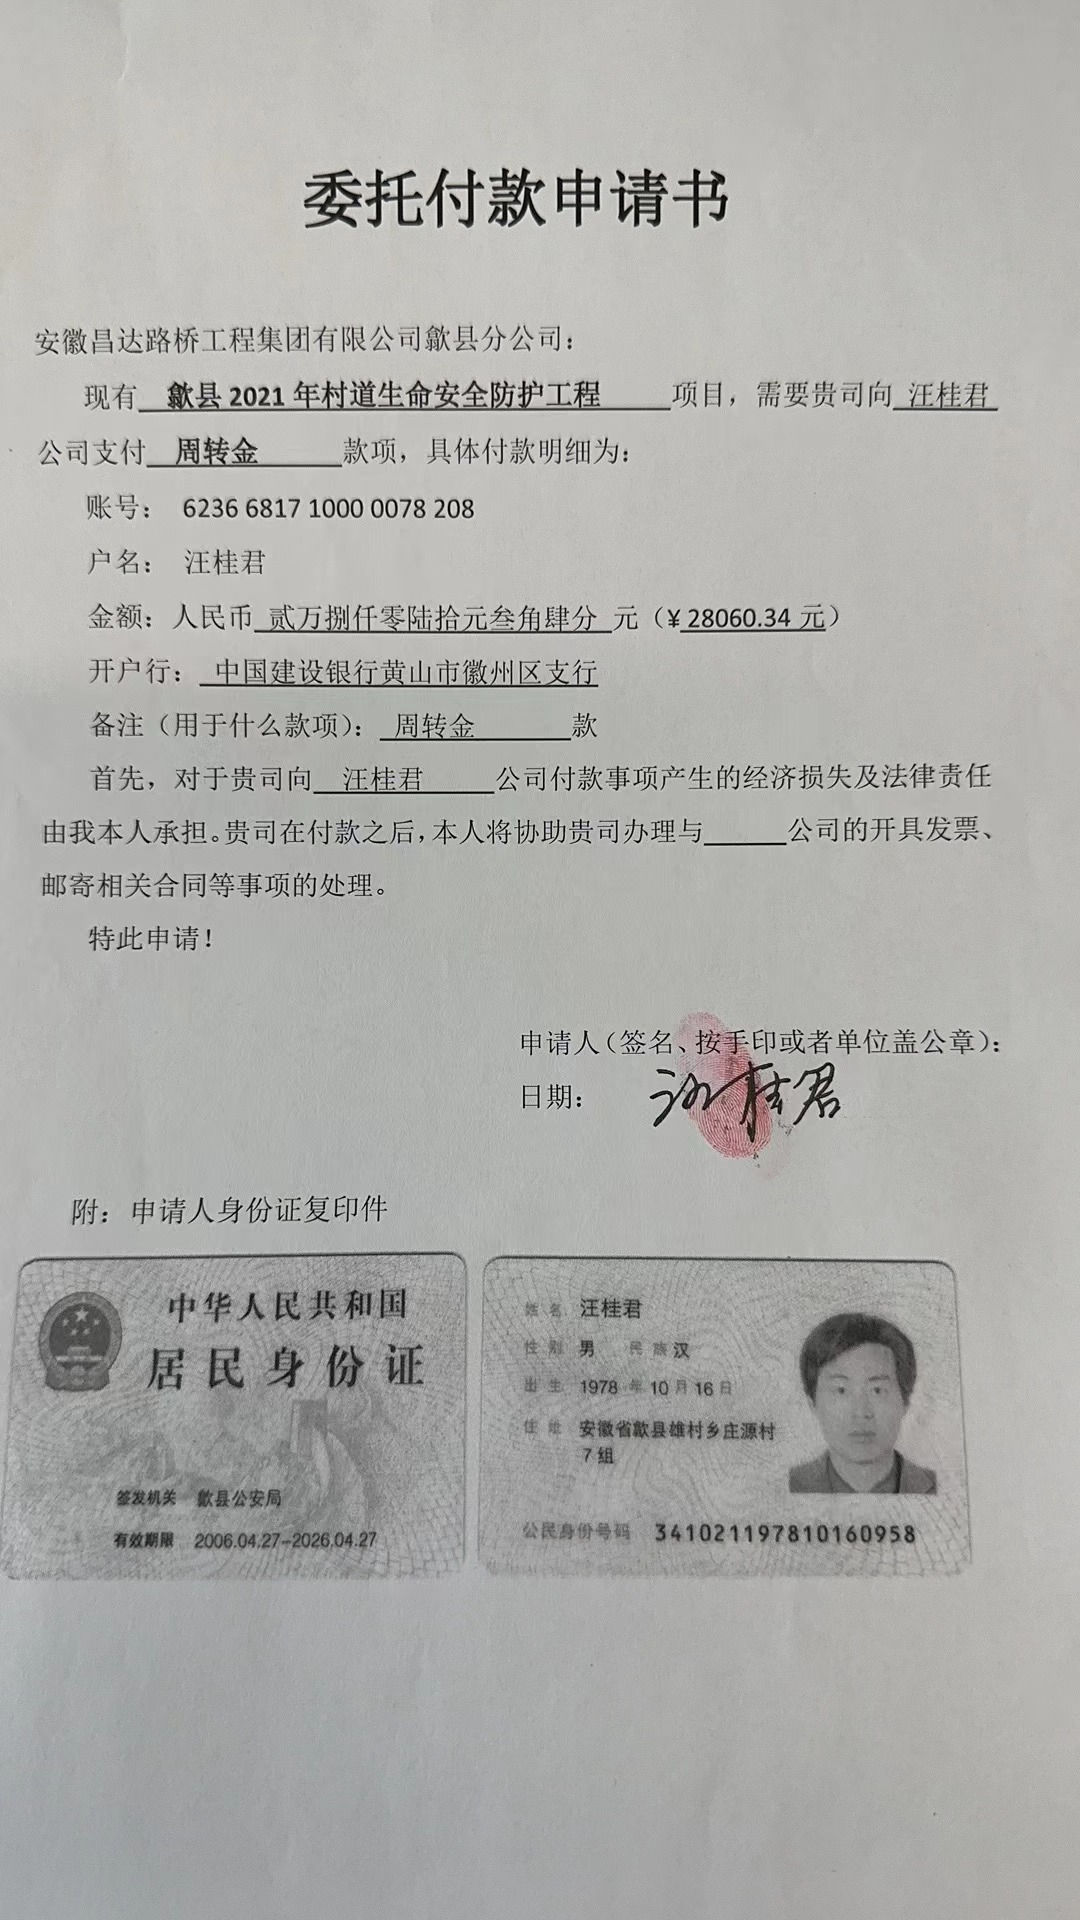 委托付款申请书
安徽昌达路桥工程集团有限公司歙县分公司：
现有 歙县 2021 年村道生命安全防护工程 项目，需要贵司向 汪桂君
公司支付 周转金 款项，具体付款明细为：
账号： 6236 6817 1000 0078 208
户名： 汪桂君
金额：人民币 贰万捌仟零陆拾元叁角肆分 元（¥ 28060.34 元）
开户行： 中国建设银行黄山市徽州区支行
备注（用于什么款项）： 周转金 款
首先，对于贵司向 汪桂君 公司付款事项产生的经济损失及法律责任
由我本人承担。贵司在付款之后，本人将协助贵司办理与______公司的开具发票、
邮寄相关合同等事项的处理。
特此申请！
申请人（签名、按手印或者单位盖公章）：
日期： 汪桂君
附：申请人身份证复印件
中华人民共和国
居民身份证
签发机关 歙县公安局
有效期限 2006.04.27-2026.04.27
姓名 汪桂君
性别 男 民族 汉
出生 1978 年 10 月 16 日
住址 安徽省歙县雄村乡庄源村
7 组
公民身份号码 341021197810160958